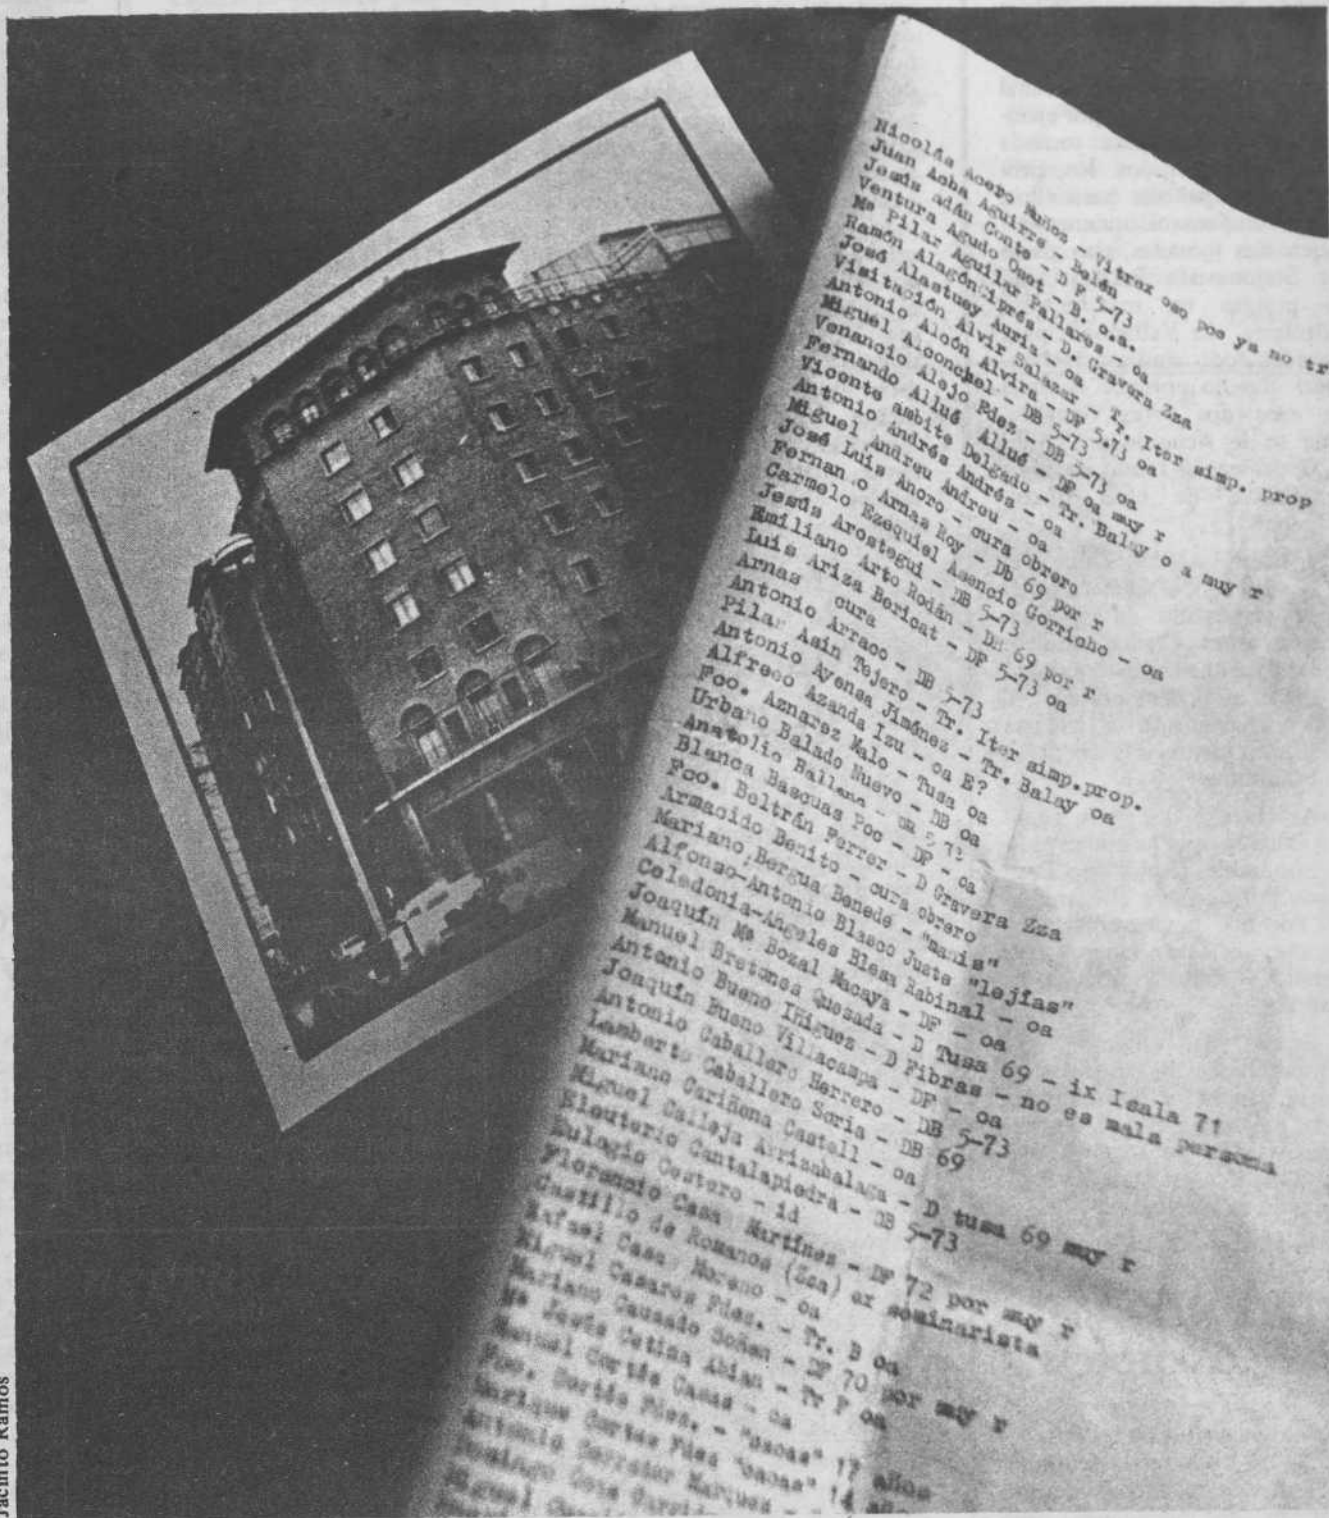 Nicolás Acero Muñoz - Vitrex oso poe ya no tr
Juan Acha Aguirre - Belén
Jesús adán Conte - D F 5-73
Ventura Agudo Oset - B. o.a.
Mª Pilar Aguilar Pallares - oa
Ramón Alagón Ciprés - D. Gravera Zza
José Alastuey Auria - oa
Visitación Alvir Salazar - Tr. Iter simp. prop
Antonio Alcón Alvira - DF 5-73 oa
Miguel Alconchel - DB 5-73
Venancio Alejo Fdez - DB 5-73 oa
Fernando Allué Allué - DF oa muy r
Vicente ámbite Delgado - Tr. Balay o a muy r
Antonio Andrés Andrés - oa
Miguel Andreu Andreu - oa
José Luis Anoro - cura obrero
Fernan o Arnas Roy - Db 69 por r
Carmelo Ezequiel Asencio Gorricho - oa
Jesús Arostegui - DB 5-73
Emiliano Arto Rodán - DB 69 por r
Luis Ariza Bericat - DF 5-73 oa
Arnas cura
Antonio Arraco - DB 5-73
Pilar Asin Tejero - Tr. Iter simp.prop.
Antonio Ayensa Jiménez - Tr. Balay oa
Alfredo Azanda Izu - oa E?
Fco. Aznarez Malo - Tusa oa
Urbano Balado Nuevo - DB oa
Anatolio Ballana - oa
Blanca Bascuas Poc - DF - oa
Fco. Beltrán Ferrer - D Gravera Zza
Armacido Benito - cura obrero
Mariano Bergua Benede - "manis"
Alfonso-Antonio Blasco Juste "lejías"
Celedonia-Angeles Blesa Rabinal - oa
Joaquín Mª Bozal Macaya - DF - oa
Manuel Bretones Quesada - D Tusa 69 - ix Isala 71
Antonio Bueno Iñiguez - D Fibras - no es mala persona
Joaquín Bueno Villacampa - DF - oa
Antonio Caballero Herrero - DB 5-73
Lamberto Caballero Soria - DB 69
Mariano Cariñena Castell - oa
Miguel Calleja Arrizabalaga - D tusa 69 muy r
Eleuterio Cantalapiedra - DB 5-73
Eulagio Cestero - id
Florencio Casa Martínes - DF 72 por muy r
Castillo de Romanos (Zza) ex seminarista
Rafael Casa Moreno - oa
Miguel Casaros Fdes. - Tr. B oa
Mariano Causado Soñen - DF 70 por muy r
Mª Jesús Cetina Abian - Tr F oa
Manuel Cortés Casas - oa
Fco. Cortés Fdes. - "cacas" 17 años
Enrique Cortes Fdes "cacas" 14 añ
Antonio Marques
Domingo
Miguel
Jacinto Ramos